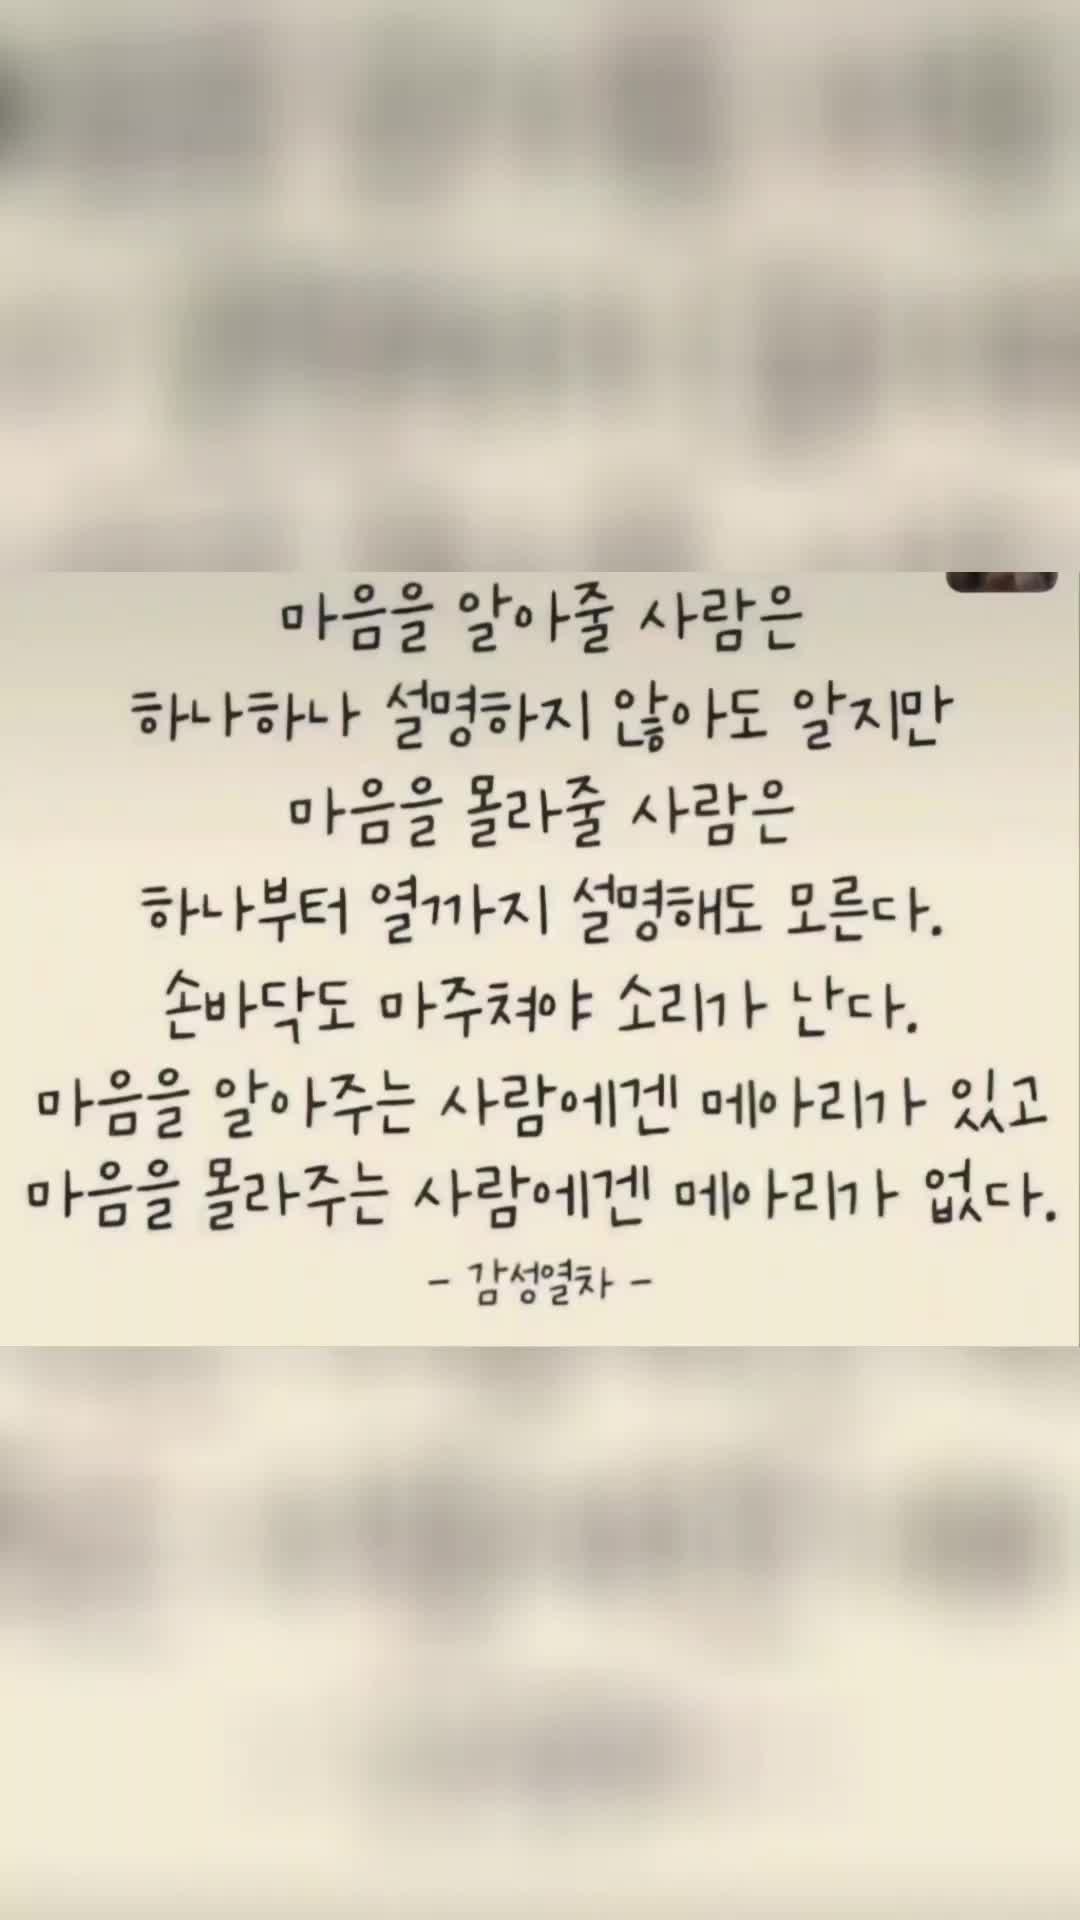 마음을 알아줄 사람은
하나하나 설명하지 않아도 알지만
마음을 몰라줄 사람은
하나부터 열까지 설명해도 모른다.
손바닥도 마주쳐야 소리가 난다.
마음을 알아주는 사람에겐 메아리가 있고
마음을 몰라주는 사람에겐 메아리가 없다.
- 감성열차 -